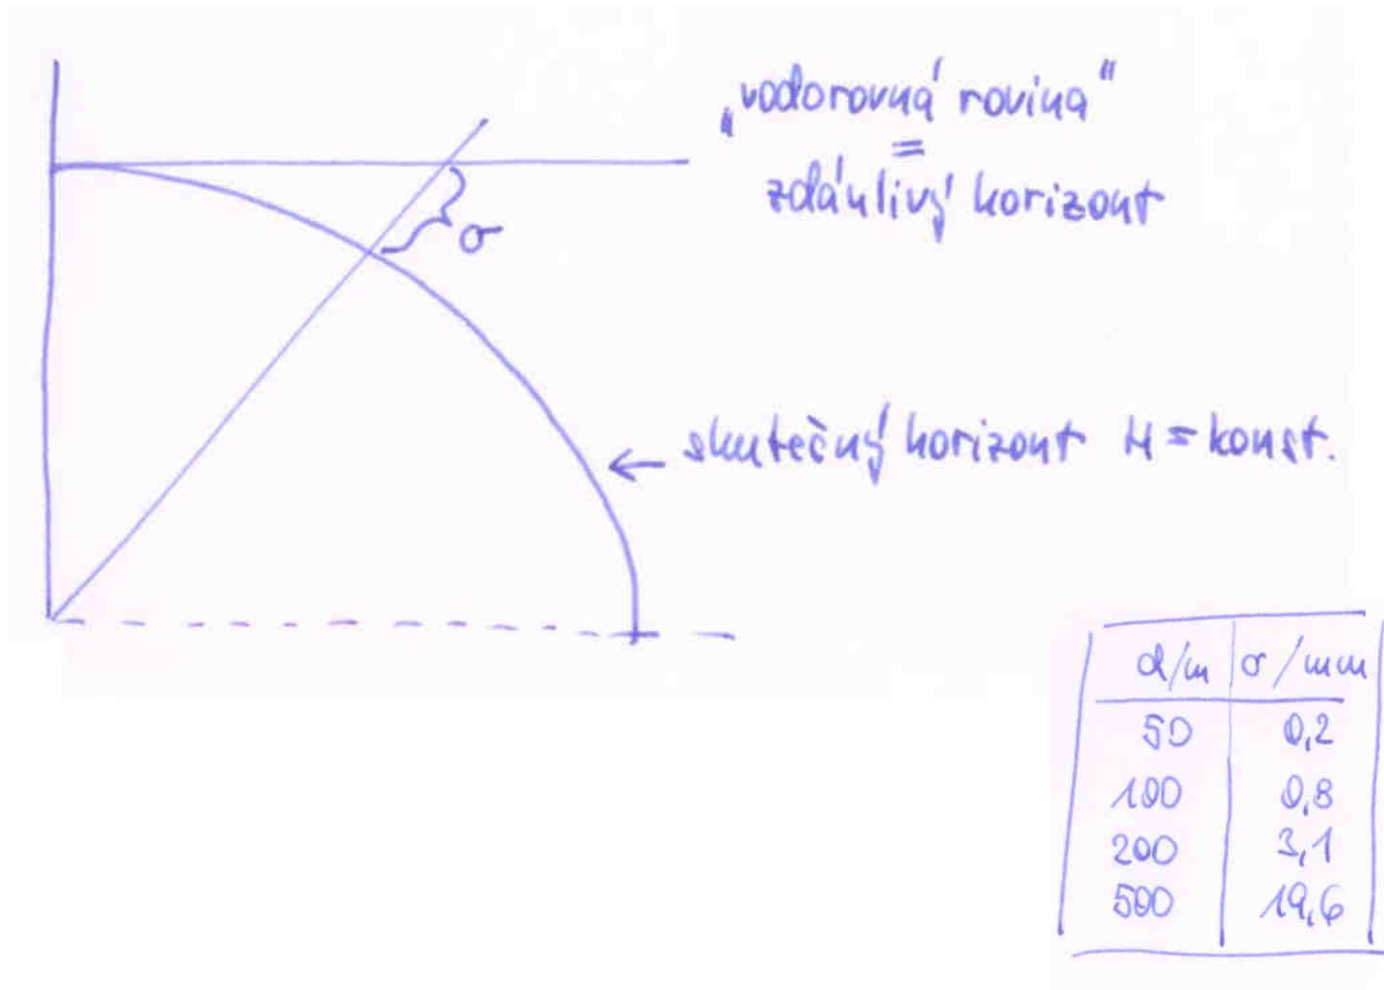 „vodorovná rovina"
=
zdánlivý horizont
σ
← skutečný horizont H = konst.
d/m σ/mm
50 0,2
100 0,8
200 3,1
500 19,6